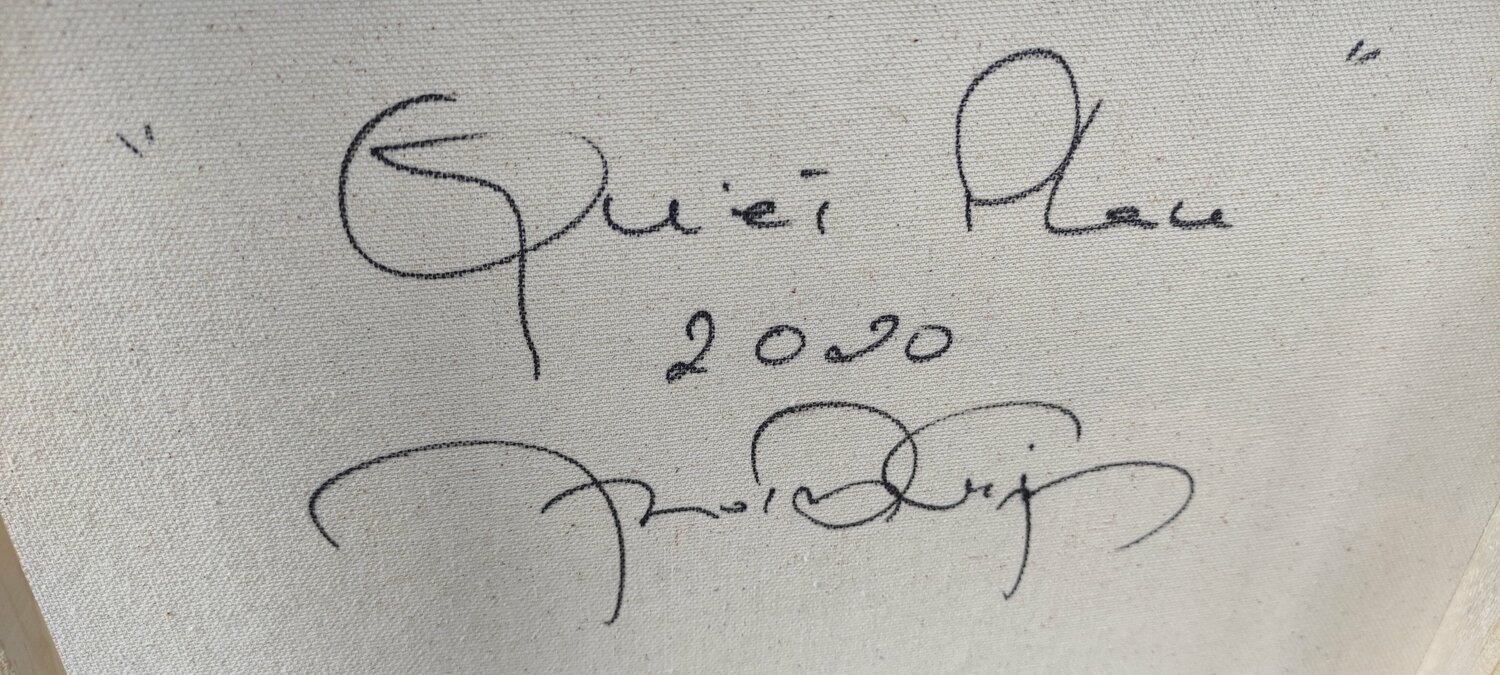 " Quiet Place "
2020